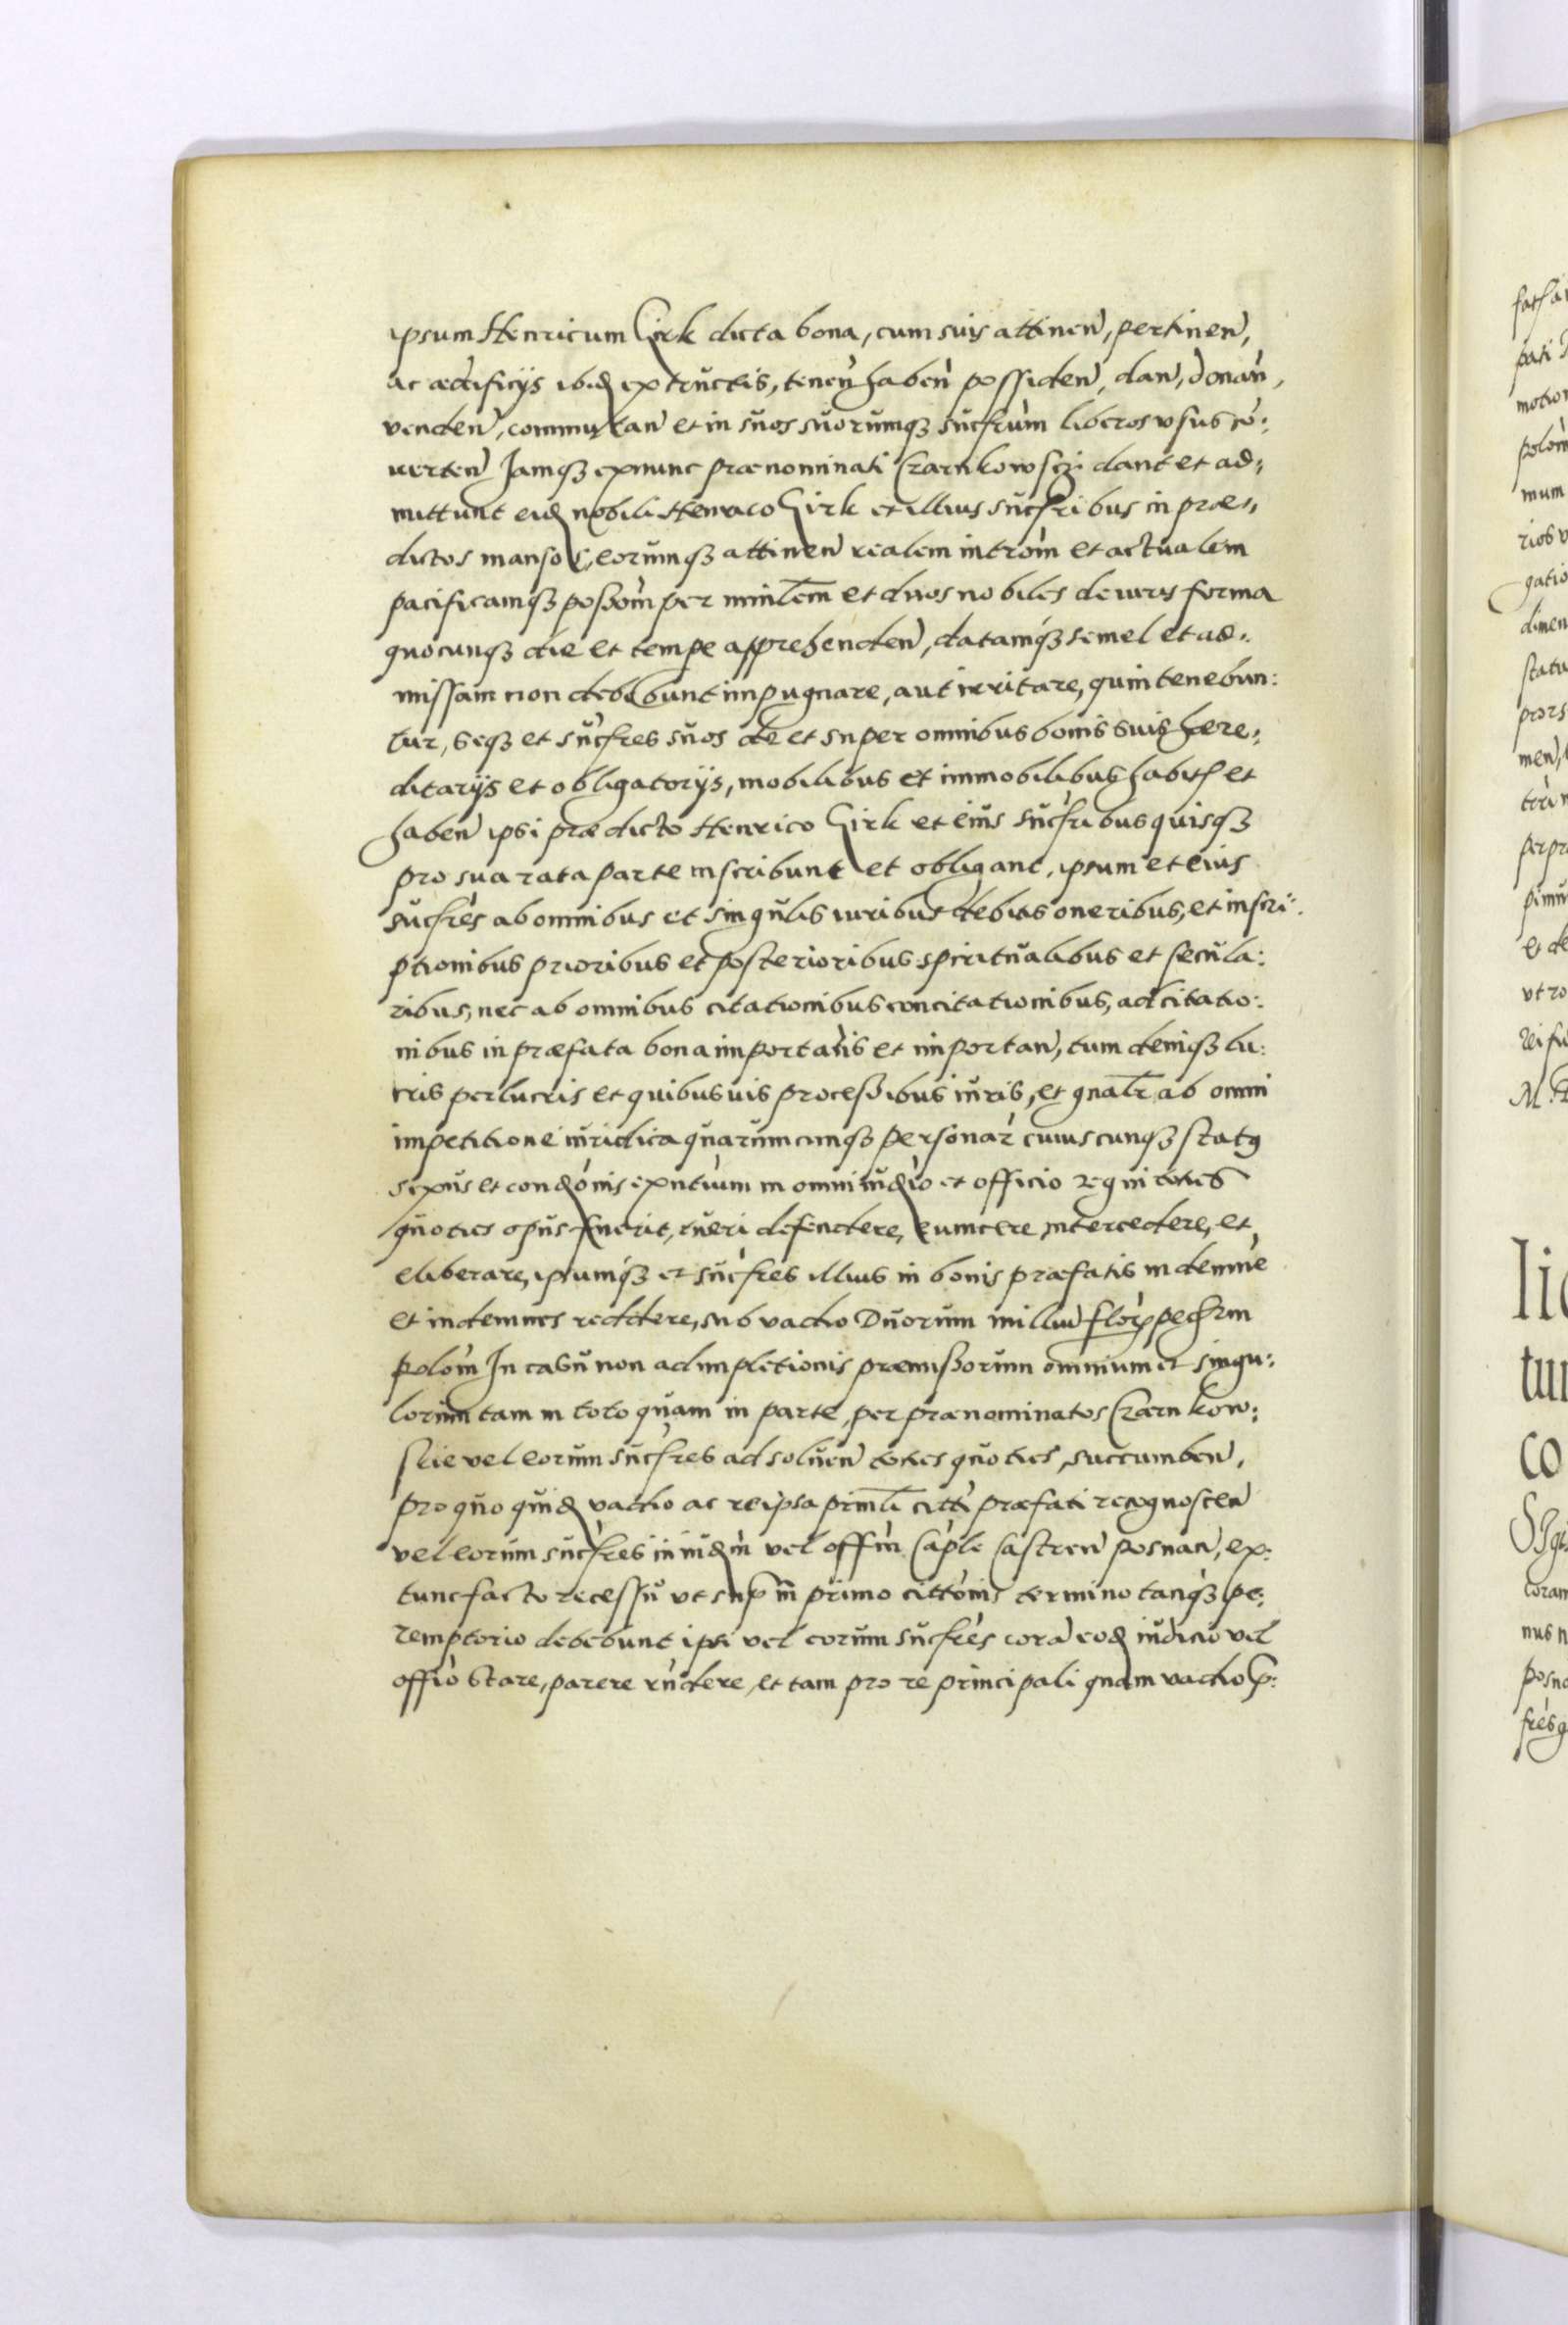 ipsum Henricum Girk dicta bona, cum suis attinen, pertinen,
ac ædificijs ibid extructis, tenen haben possiden, dan, donan,
venden, commutan et in suos suorumq3 sucfrum liberos vsus cō:
uerten Jamq3 exnunc prænominati Czarnkowsczi dant et ad:
mittunt eid nobili Henrico Girk et illius sucfribus in præ:
dictos mansos, eorumq3 attinen realem introm et actualem
pacificamq3 possom per minlem et duos nobiles de iuris forma
quocunq3 die et tempe apprehenden, datamq3 semel et ad:
missam non debebunt impugnare, aut irritare, quin tenebun:
tur, seq3 et sucfres suos de et super omnibus bonis suis here:
ditarijs et obligatorijs, mobilibus et immobilibus habit et
haben ipsi prædicto Henrico Girk et eius sucfribus quisq3
pro sua rata parte inscribunt et obligant, ipsum et eius
sucfres ab omnibus et singulis iuribus debitis oneribus, et inscri:
ptionibus prioribus et posterioribus spiritualibus et secula:
ribus, nec ab omnibus citationibus concitationibus, adcitatio:
nibus in præfata bona importatis et importan, tum deniq3 lu:
cris perlucris et quibusuis processibus iuris, et gnalr ab omni
impetitione iuridica quarumcunq3 personar cuiuscunq3 stat9
sexus et condonis exntium in omni iudio et officio regni toties
quoties opus fuerit, tueri defendere, euincere intercedere, et
eliberare, ipsumq3 et sucfres illius in bonis præfatis indemne
et indemnes reddere, sub vadio Duorum milliu flor pechun
polom In casu non adimpletionis præmissorum omnium et singu:
lorum tam in toto quam in parte, per prænominatos Czarnkow:
skie vel eorum sucfres ad soluen toties quoties, succumben,
pro quo quid vadio ac re ipsa prinli citti præfati recognoscen
vel eorum sucfres in iudm vel offm Caple Castren posnan, ex:
tunc facto recessu vt sup in primo cittonis termino tanq3 pe:
remptorio debebunt ipsi vel eorum sucfres corā eod iudicio vel
offio stare, parere rndere, et tam pro re principali quam vadio p: